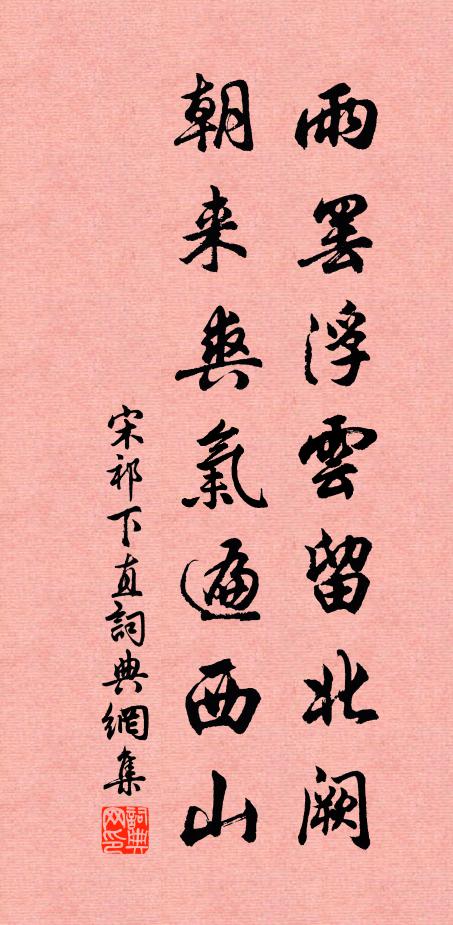 雨罢浮雲留北阙
朝来爽氣遍西山
宋祁下直詞典網集
詞典网印